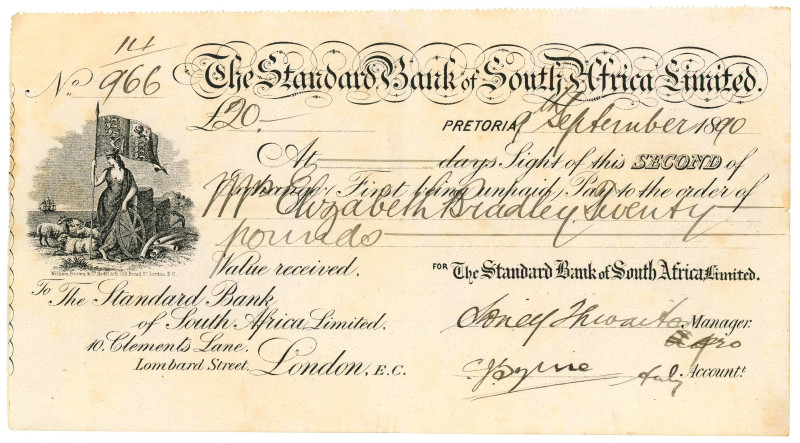 14
No 966
The Standard Bank of South Africa Limited.
£20.-
PRETORIA 9th September 1890
At days Sight of this SECOND of
Exchange (First being unpaid) Pay to the order of
Mrs Elizabeth Bradley Twenty
pounds
Value received.
FOR The Standard Bank of South Africa Limited.
To The Standard Bank
of South Africa, Limited.
10. Clements Lane.
Lombard Street. London, E.C.
Manager.
pro
Accountt